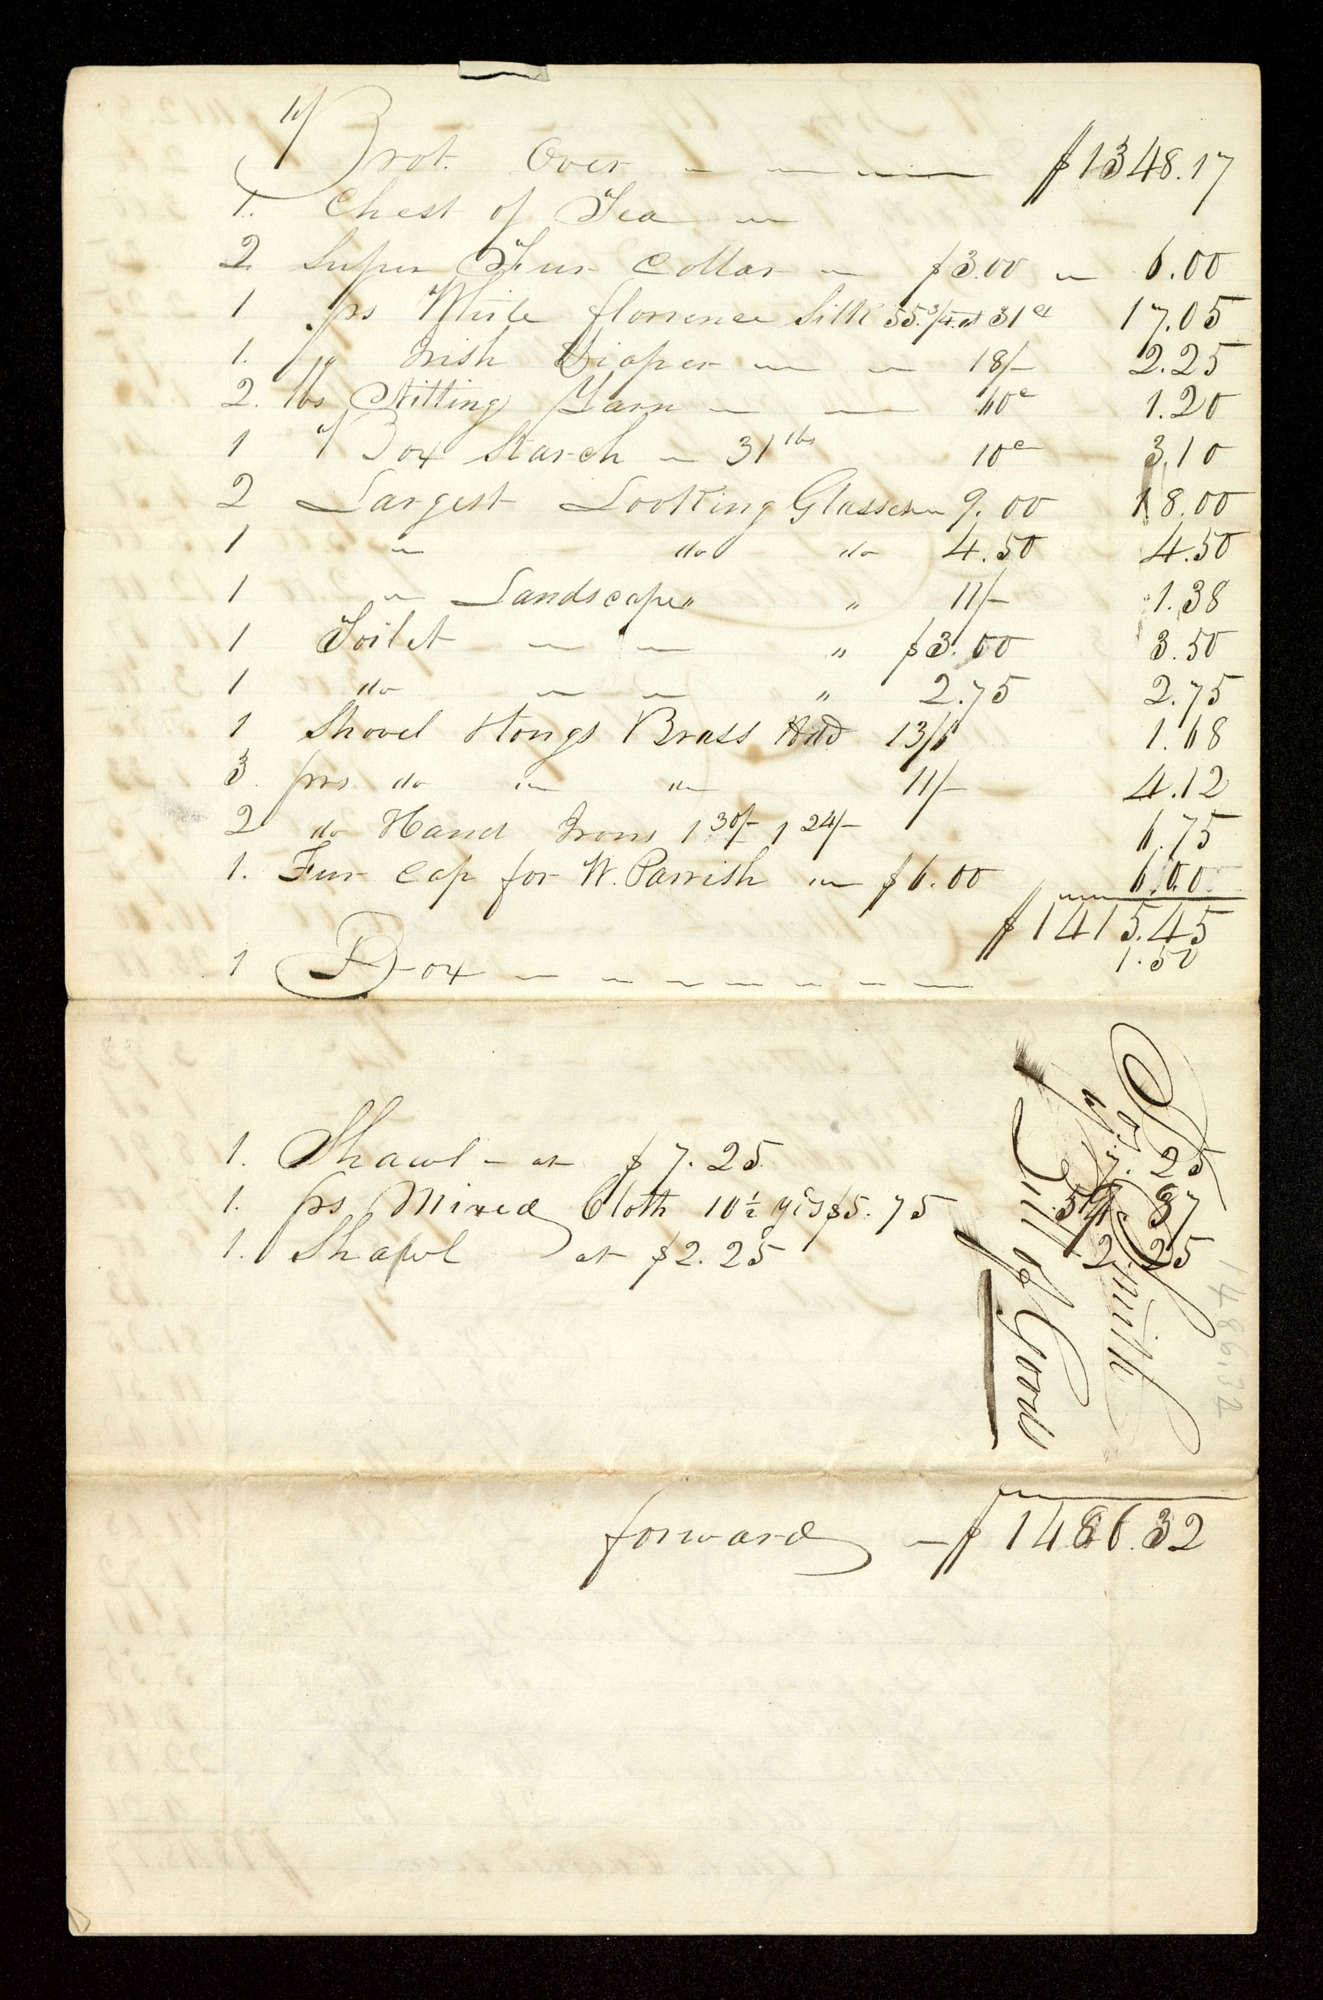 Brot. Over $1348.17
1. Chest of Tea "
2 Super Fur Collar " $3.00 " 6.00
1 ps White florence Silk 55 3/4 at 31c 17.05
1. ps Irish Diaper " " 18/- 2.25
2. lbs Nitting Yarn 60c 1.20
1 Box Starch 31 lbs 10c 3.10
2 Largest Looking Glasses " 9.00 18.00
1 " do do 4.50 4.50
1 " Landscape " " 11/- 1.38
1 Toilet " " " $3.50 3.50
1 do " " " 2.75 2.75
1 Shovel & Tongs Brass Hdd 13/6 1.68
3 prs do " " 11/- 4.12
2 do Hand Irons 1 30/- 1 24/- 6.75
1. Fur Cap for W. Parrish " $6.00 6.00
$1415.45
1 Box 1.50
1. Shawl - at $7.25 7.25
1. ps Mixed Cloth 10 1/2 yds $5.75 37
1. Shawl at $2.25 2 25
Smith
Bill of Goods
1486.32
forward $1486.32